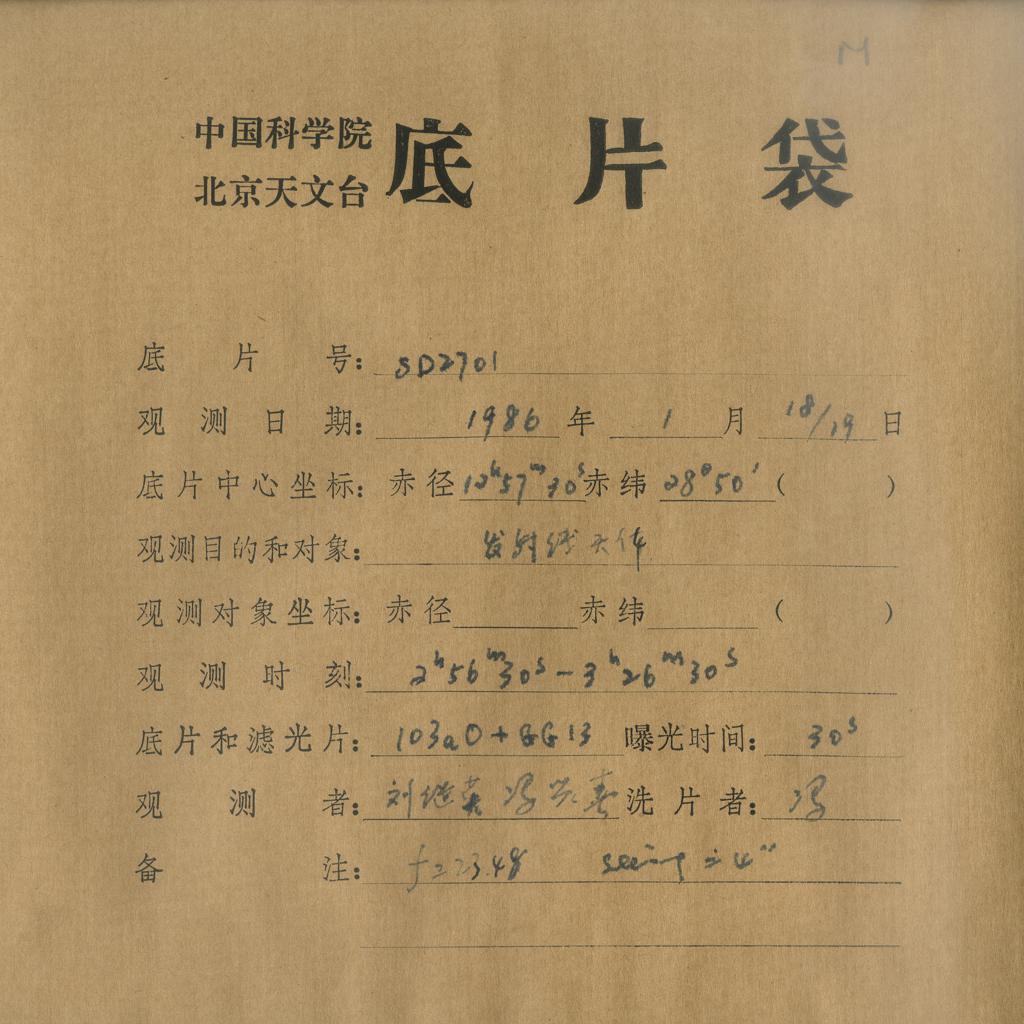 M
中国科学院
北京天文台
底片袋
底片号: SD2701
观测日期: 1986年 1月 18/19日
底片中心坐标: 赤径 12h57m30s 赤纬 28°50′( )
观测目的和对象: 发射线天体
观测对象坐标: 赤径 赤纬 ( )
观测时刻: 2h56m30s-3h26m30s
底片和滤光片: 103aO+GG13 曝光时间: 30s
观测者: 刘继英 冯兴春 洗片者: 冯
备注: f=23.48 seeing=4″